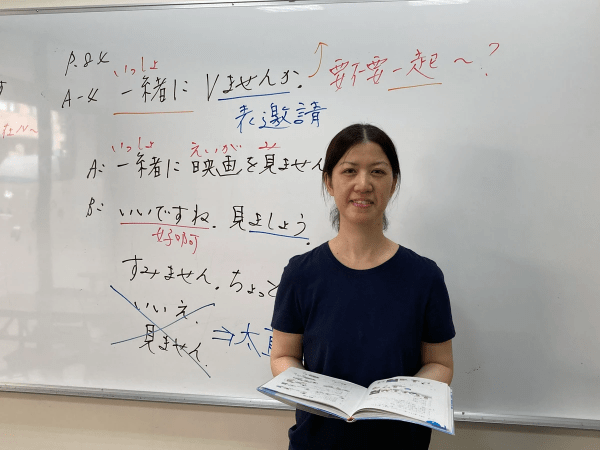 P.84
いっしょ
A-4 一緒に Vませんか。 要不要一起～?
表邀請
在N～
いっしょ えいが み
A: 一緒に 映画を見ません
B: いいですね. 見ましょう.
好啊
すみません. ちょっと
いいえ.
見ません. ⇒ 太